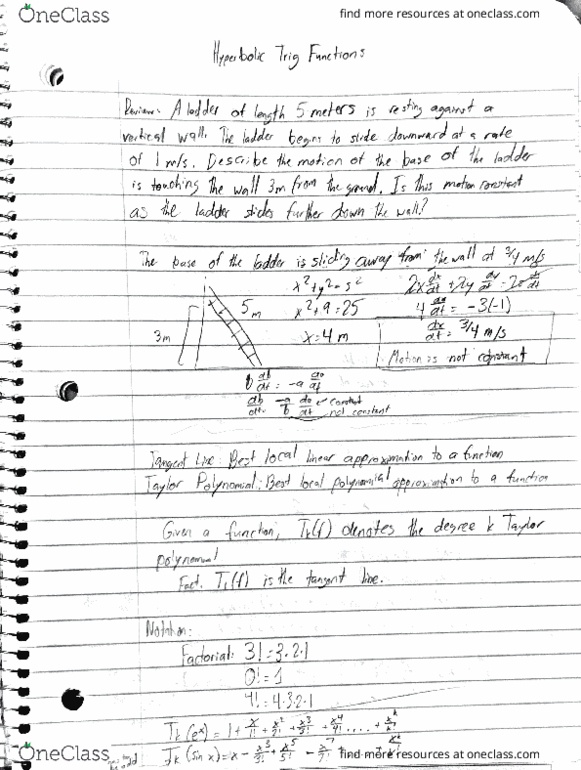 OneClass
find more resources at oneclass.com
Hyperbolic Trig Functions
Review: A ladder of length 5 meters is resting against a
vertical wall. The ladder begins to slide downward at a rate
of 1 m/s. Describe the motion of the base of the ladder
is touching the wall 3m from the ground. Is this motion constant
as the ladder slides further down the wall?
The base of the ladder is sliding away from the wall at 3/4 m/s
x²+y²=5² 2x dx/dt + 2y dy/dt
5m x²+9=25 4 dx/dt = -3(-1)
3m x=4m dx/dt = 3/4 m/s
Motion is not constant
b db/dt = -a da/dt
db/dt = -a/b da/dt ← constant
not constant
Tangent Line: Best local linear approximation to a function
Taylor Polynomial: Best local polynomial approximation to a function
Given a function, Tk(f) denotes the degree k Taylor
polynomial
Fact. T1(f) is the tangent line.
Notation:
Factorial: 3!=3·2·1
0!=1
4!=4·3·2·1
Tk(e^x)=1+x/1!+x²/2!+x³/3!+x⁴/4!...+x^k/k!
Tk(sin x)=x-x³/3!+x⁵/5!-x⁷/7!
OneClass
find more resources at oneclass.com